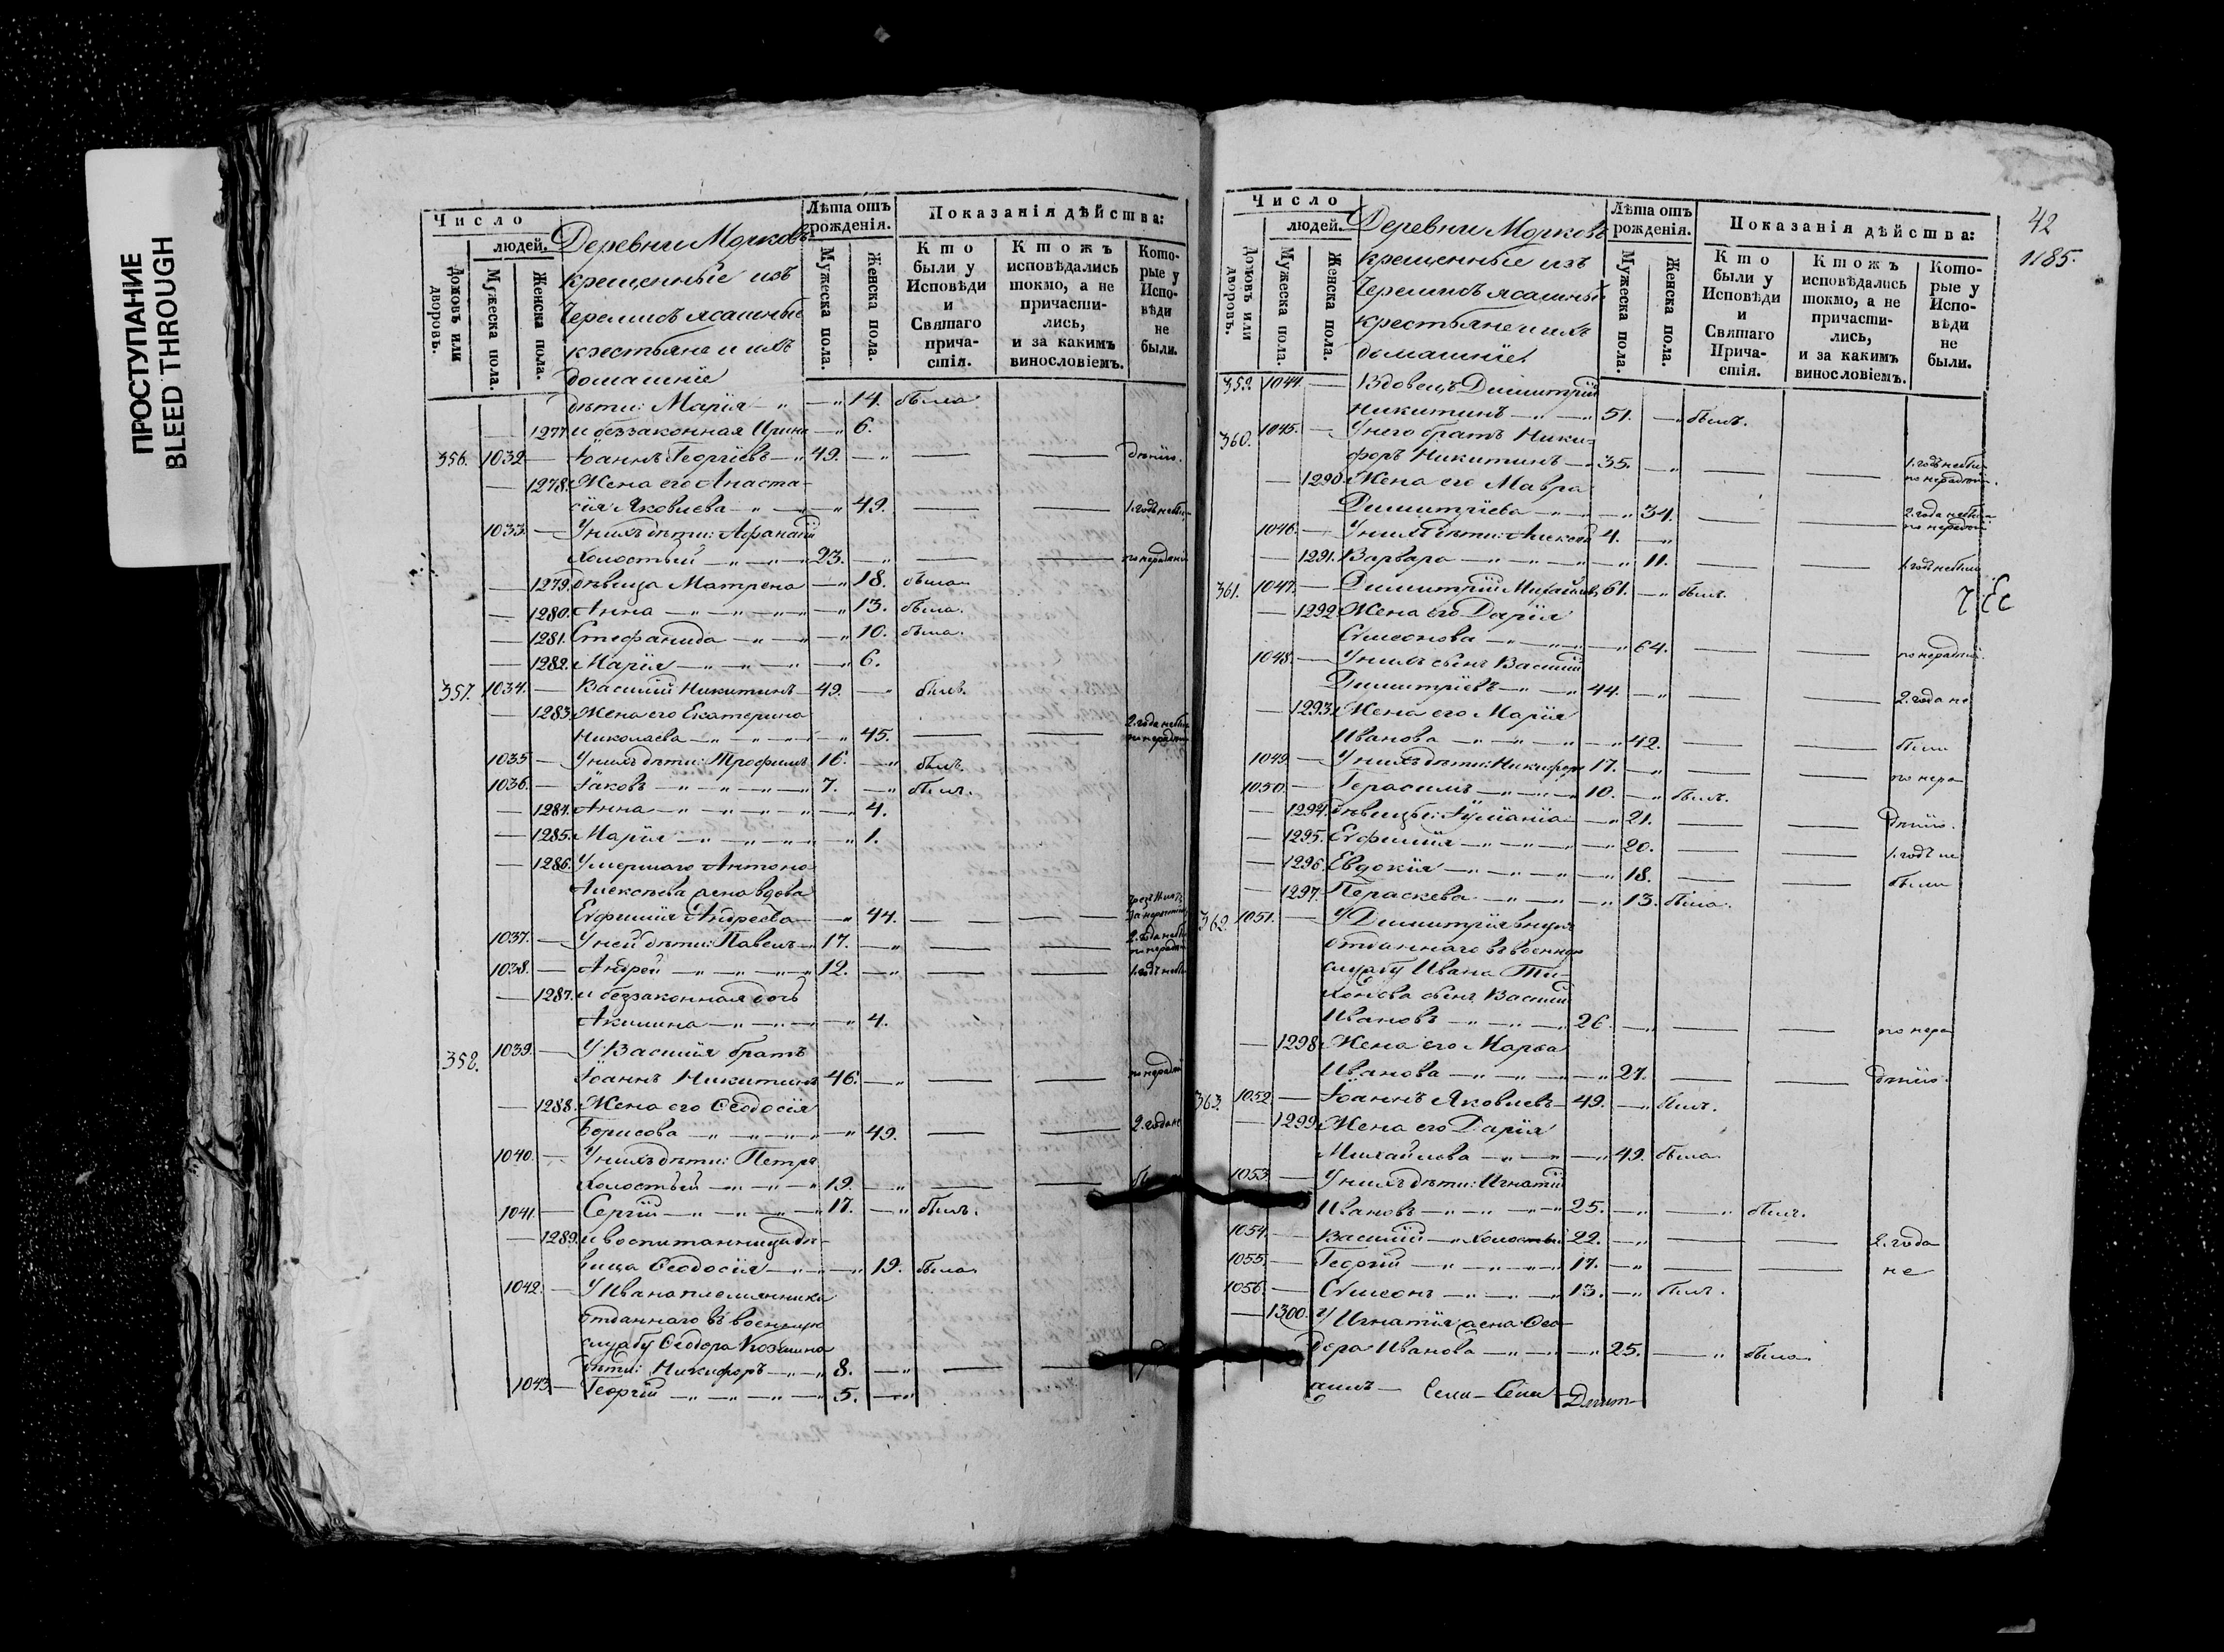 ПРОСТУПАНИЕ
BLEED THROUGH
Число
людей.
Домовъ или дворовъ.
Мужеска пола.
Женска пола.
Деревни Морковъ
крещенные изъ
Черемисъ ясашные
крестьяне и ихъ
домашніе
Лѣта отъ рожденія.
Мужеска пола.
Женска пола.
Показанія дѣйства:
Кто были у Исповѣди и Святаго причастія.
Ктожъ исповѣдались токмо, а не причастились, и за какимъ винословіемъ.
Которые у Исповѣди не были.
дѣти: Марія 14. была
1277. и беззаконная Ирина 6.
356. 1032 Іоаннъ Георгіевъ 49.
1278. Жена его Анаста-
сія Яковлева 49. 1. годъ не был
1033. У нихъ дѣти: Афанасій
Холостый 23. по нерадѣнію
1279. дѣвица Матрена 18. была
1280. Анна 13. была.
1281. Стефанида 10. была.
1282. Марія 6.
357. 1034. Василій Никитинъ 49. былъ.
1283. Жена его Екатерина
Николаева 45. 2. года не был по нерадѣн
1035 У нихъ дѣти: Трофимъ 16. былъ.
1036. Іаковъ 7. былъ.
1284. Анна 4.
1285. Марія 1.
1286. Умершаго Антона
Алексѣева жена вдова
Евфимія Андреева 44.
1037. У ней дѣти: Павелъ 17. 2. года не был по нерадѣн
1038. Андрей 12. 1. годъ не был
1287. и беззаконная дочь
Акилина 4.
358. 1039. У Василія братъ
Іоаннъ Никитинъ 46. по нерадѣн
1288. Жена его Ѳеодосія
Борисова 49. 2. года не
1040. У нихъ дѣти: Петръ
Холостый 19.
1041. Сергій 17. былъ.
1289. и воспитанница дѣ-
вица Ѳеодосія 19. была
1042. У Ивана племянника
отданнаго въ военную
службу Ѳеодора Козмина
дѣти: Никифоръ 8.
1043 Георгій 5.
42
1185.
Число
людей.
Домовъ или дворовъ.
Мужеска пола.
Женска пола.
Деревни Морковъ
крещенные изъ
Черемисъ ясашные
крестьяне и ихъ
домашніе
Лѣта отъ рожденія.
Мужеска пола.
Женска пола.
Показанія дѣйства:
Кто были у Исповѣди и Святаго Причастія.
Ктожъ исповѣдались токмо, а не причастились, и за какимъ винословіемъ.
Которые у Исповѣди не были.
359. 1044. Вдовецъ Димитрій
Никитинъ 51. былъ.
360. 1045. У него братъ Ники-
форъ Никитинъ 35. 1. годъ не был по нерадѣн
1290. Жена его Мавра
Димитріева 34. 2. года не был по нерадѣн
1046. У нихъ дѣти: Алексѣй 4.
1291. Варвара 11. 1. годъ не был
361. 1047. Димитрій Михайловъ 61. былъ.
1292 Жена его Дарія
Симеонова 64. по нерадѣн
1048. У нихъ сынъ Василій
Димитріевъ 44. 2. года не
1293. Жена его Марія
Иванова 42. были
1049. У нихъ дѣти: Никифоръ 17. по нера
1050. Герасимъ 10. былъ.
1294. дѣвицы: Іуліанія 21. дѣнію.
1295. Евфимія 20. 1. годъ не
1296 Евдокія 18. были
1297. Параскева 13. была.
362. 1051. У Димитрія внука
отданнаго въ военную
службу Ивана Ти-
хонова сынъ Василій
Ивановъ 26. по нера
1298. Жена его Марѳа
Иванова 27. дѣнію.
363. 1052 Іоаннъ Яковлевъ 49. былъ.
1299. Жена его Дарія
Михайлова 49. была
1053 У нихъ дѣти: Игнатій
Ивановъ 25. былъ.
1054. Василій Холостый 22. 2. года
1055. Георгій 17. не
1056. Симеонъ 13. былъ.
1300. У Игнатія жена Ѳео-
дора Иванова 25. была